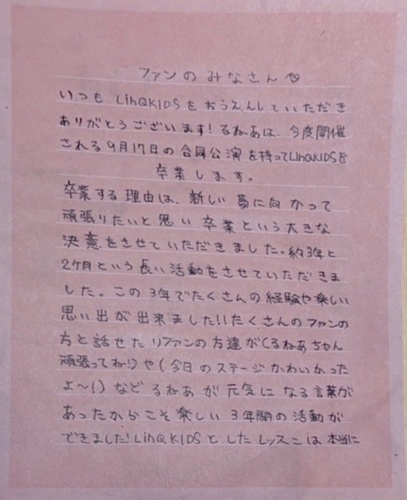 ファンのみなさん♡
いつも LinQKIDS をおうえんしていただき
ありがとうございます!るねあは、今度開催
される9月17日の合同公演を持ってLinQKIDSを
卒業します。
卒業する理由は、新しい夢に向かって
頑張りたいと思い卒業という大きな
決意をさせていただきました。約3年と
2ヶ月という長い活動をさせていただきま
した。この3年でたくさんの経験や楽しい
思い出が出来ました!!たくさんのファンの
方と話せたりファンの方達が(るねあちゃん
頑張ってね!)や(今日のステージかわいかった
よ〜!)などるねあが元気になる言葉が
あったからこそ楽しい3年間の活動が
できました!LinQKIDSとしたレッスンは本当に